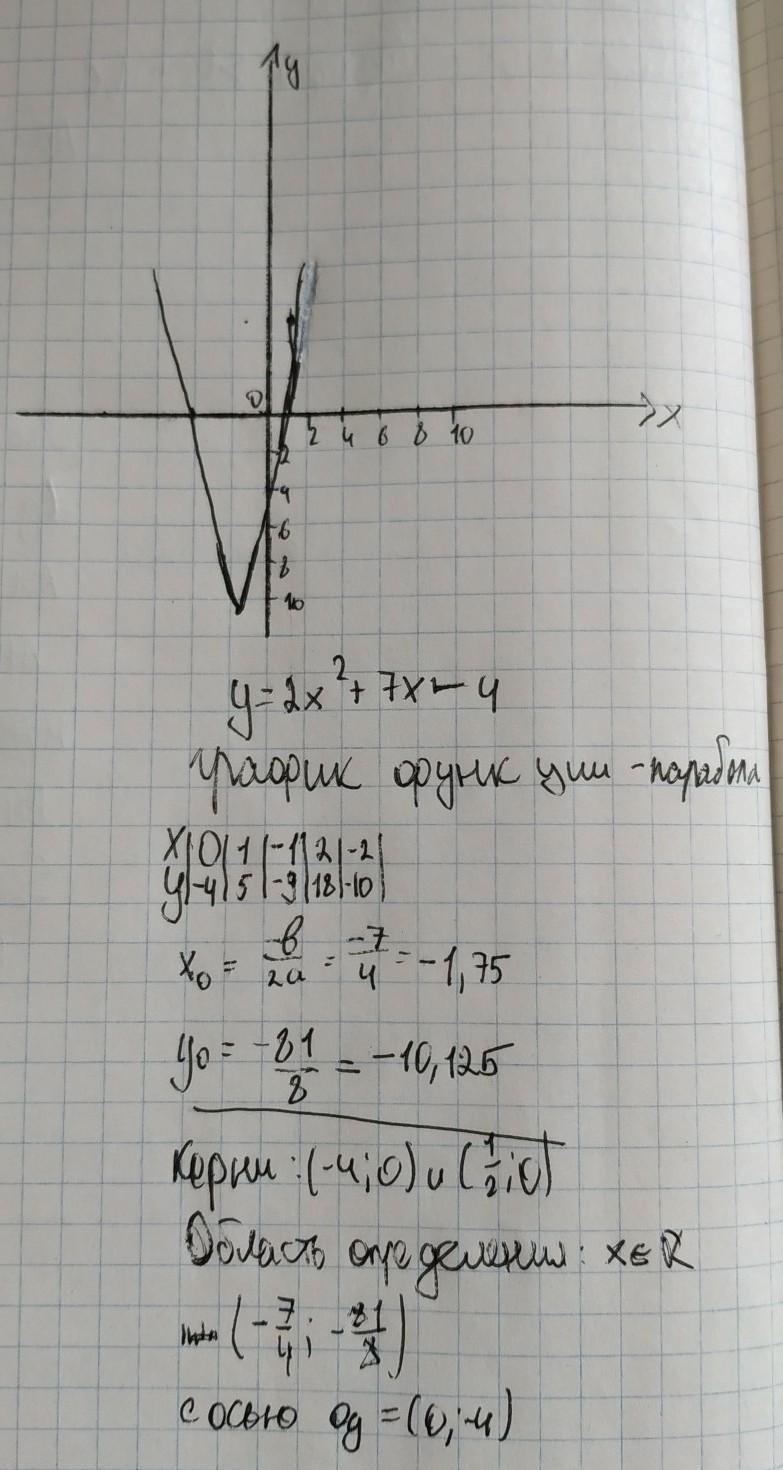 y
0
x
2 4 6 8 10
2
4
6
8
10
y=2x²+7x-4
график функции - парабола
x|0|1|-1|2|-2|
y|-4|5|-9|18|-10|
x₀ = -в/2a = -7/4 = -1,75
y₀ = -81/8 = -10,125
Керни: (-4;0) и (1/2;0)
Область определения: x∈R
(-7/4; -81/8)
с осью оу =(0;-4)